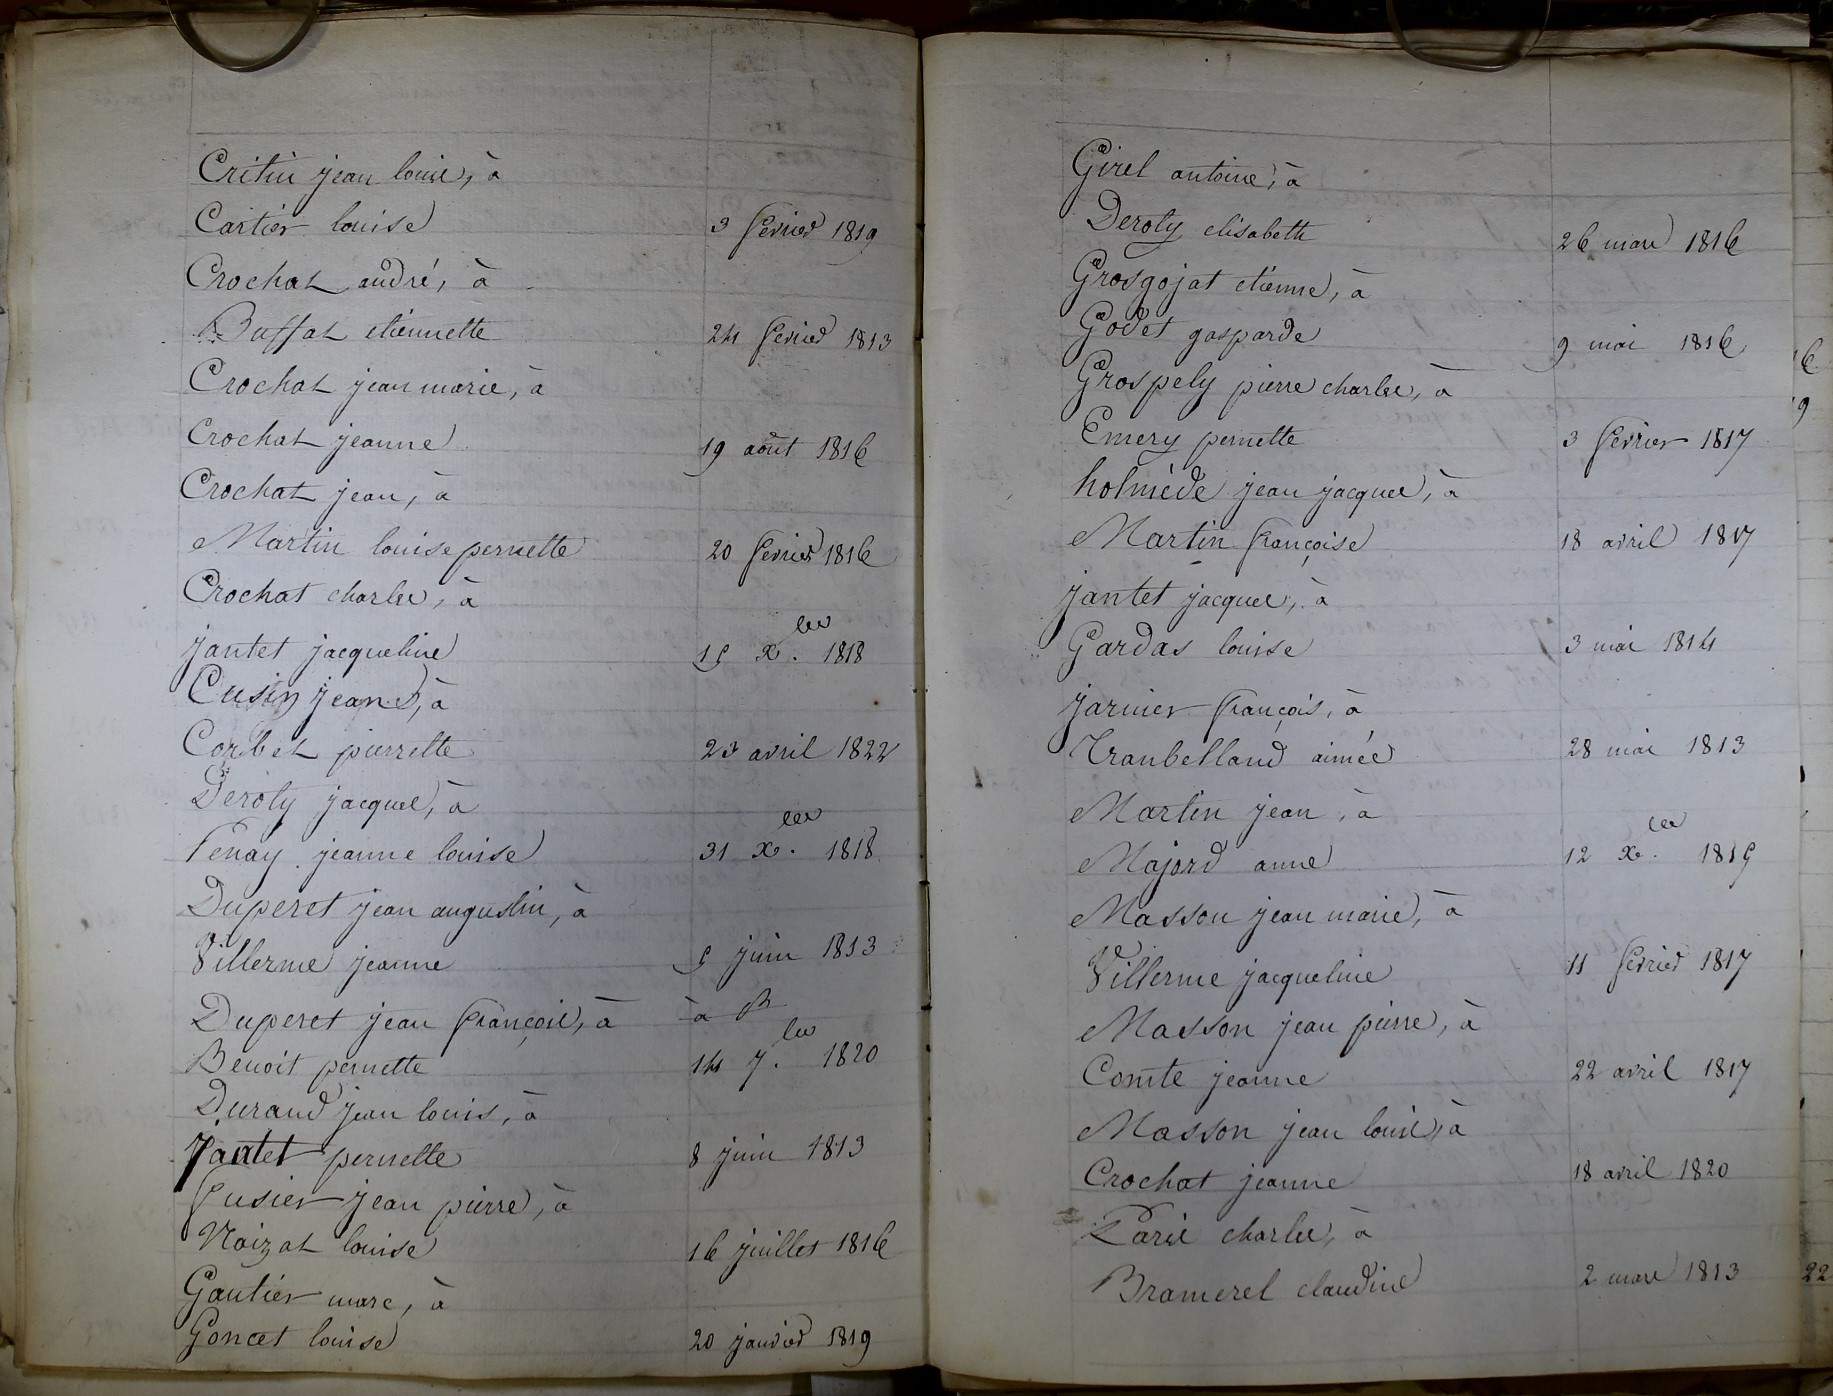 Critin jean louis, à
Cartier louise 3 fevrier 1819
Crochat andré, à
Buffat etiennette 24 fevrier 1813
Crochat jean marie, à
Crochat jeanne 19 août 1816
Crochat jean, à
Martin louise pernette 20 fevrier 1816
Crochat charles, à
jantet jacqueline 15 x.bre 1818
Cusin jean, à
Corbet pierrette 23 avril 1822
Deroly jacques, à
Penay jeanne louise 31 x.bre 1818
Duperet jean augustin, à
Villerme jeanne 5 juin 1813
Duperet jean françois, à à B
Benoit pernette 14 7.bre 1820
Durand jean louis, à
Jantet pernette 8 juin 1813
fusier jean pierre, à
Noizat louise 16 juillet 1816
Gautier marc, à
Goncet louise 20 janvier 1819
Girel antoine, à
Deroly elisabeth 26 mars 1816
Grosgojat etienne, à
Godet gasparde 9 mai 1816
Grospely pierre charles, à
Emery pernette 3 fevrier 1817
holmède jean jacques, à
Martin françoise 18 avril 1817
jantet jacques, à
Gardas louise 3 mai 1814
jarnier françois, à
Tranbelland aimée 28 mai 1813
Martin jean, à
Majord anne 12 x.bre 1815
Masson jean marie, à
Villerme jacqueline 11 fevrier 1817
Masson jean pierre, à
Comte jeanne 22 avril 1817
Masson jean louis, à
Crochat jeanne 18 avril 1820
Paris charles, à
Bramerel claudine 2 mars 1813
6
9
22